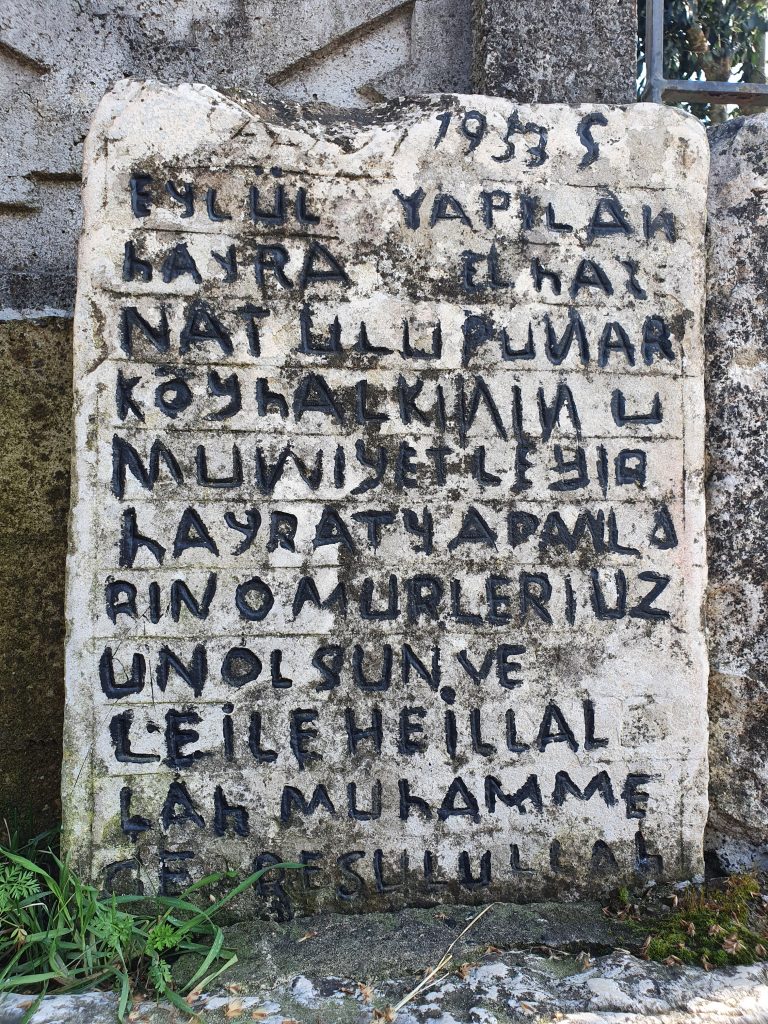 1953 5
EYLÜL YAPILAN
hAYRA ELhAS
NAT ULU PUNAR
KÖYhALKININ U
MUMİYETLEYIR
hAYRATYAPANLA
RIN OMURLERİ UZ
UN OLSUN VE
LEİLEHEİLLAL
LAh MUhAMME
DE RESULULLAh